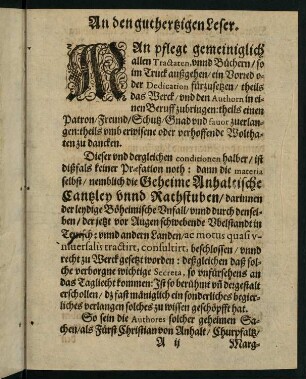 An den guthertzigen Leser.
MAn pflegt gemeiniglich
allen Tractaten, vnnd Büchern / so
im Truck außgehen / ein Vorred o-
der Dedication fürzusetzen / theils
das Werck / vnd den Authorn in ei-
nen Beruff zubringen: theils einen
Patron / Freund / Schutz / Gnad vnd favor zuerlan-
gen: theils vmb erwisene oder verhoffende Woltha-
ten zu dancken.
Dieser vnd dergleichen conditionen halber / ist
dißfals keiner Præfation noth: dann die materia
selbst / nemblich die Geheime Anhaltische
Cantzley vnnd Rathstuben / darinnen
der leydige Böheimische Vnfall / vnnd durch densel-
ben / der jetzt vor Augen schwebende Vbelstandt in
Teutsch: vnnd andern Landen / ac motus quasi v-
niuersalis tractirt, consultirt, beschlossen / vnnd
recht zu Werck gesetzt worden: deßgleichen daß sol-
che verborgne wichtige Secreta, so vnfürsehens an
das Tagliecht kommen: Ist so berühmt vñ dergestalt
erschollen / dz fast mäniglich ein sonderliches begier-
liches verlangen solches zu wissen geschöpfft hat.
So sein die Authores solcher geheimen Sa-
chen / als Fürst Christian von Anhalt / Churpfaltz /
A ij Marg-